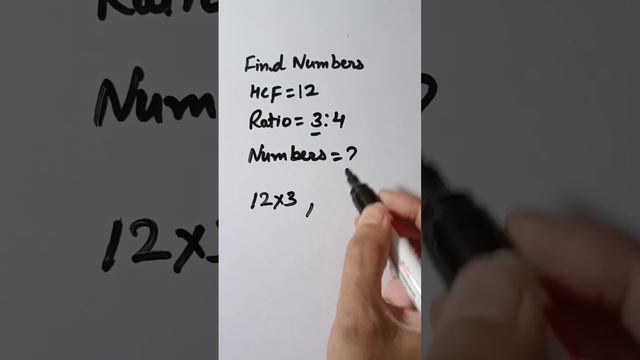 Find Numbers
HCF=12
Ratio= 3:4
Numbers=?
12x3 ,